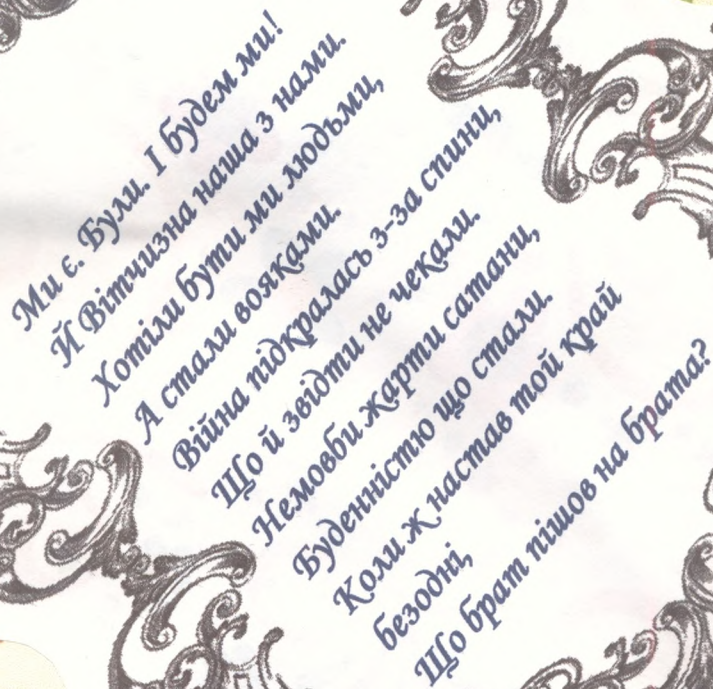 Ми є. Були. І будем ми!
Й Вітчизна наша з нами.
Хотіли бути ми людьми,
А стали вояками.
Війна підкралась з-за спини,
Що й звідти не чекали.
Немовби жарти сатани,
Буденністю що стали.
Коли ж настав той край
безодні,
Що брат пішов на брата?